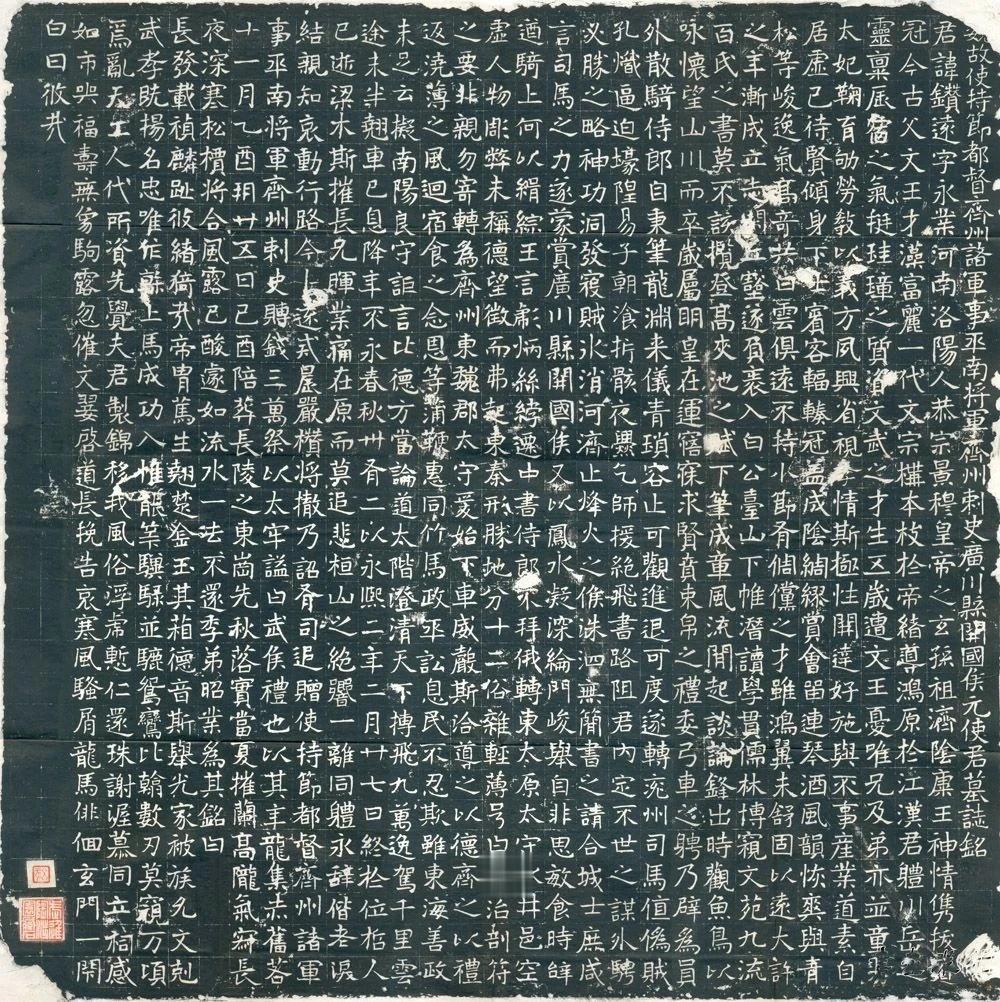 故使持節都督齊州諸軍事平南將軍齊州刺史廣川縣開國侯元使君墓誌銘
君諱鑽遠字永業河南洛陽人恭宗景穆皇帝之玄孫祖濟陰康王神情儁拔
冠今古父文王才藻富麗一代文宗構本枝於帝緒導鴻原於江漢君體川岳之
靈稟辰宿之氣挺珪璋之質資文武之才生五歲遭文王憂唯兄及弟亦並童
太妃鞠育劬勞教以義方夙興省視孝情斯極性開達好施與不事產業道素自
居虛己待賢傾身下士賓客輻輳冠蓋成陰綢繆賞會留連琴酒風韻恢爽與青
松等峻逸氣高奇共白雲俱遠不持小節有倜儻之才雖鴻翼未舒固以遠大許
之年漸成立志 墊遂負袠入白公臺山下帷潛讀學貫儒林博窺文苑九流
百氏之書莫不該攬登高夾池之賦下筆成章風流間起談論鋒出時觀魚鳥以
詠懷望山川而卒歲屬明皇在運寤寐求賢賁束帛之禮委弓車之聘乃辟為員
外散騎侍郎自東筆龍淵來儀青瑣容止可觀進退可度遂轉兗州司馬值偽賊
孔熾逼迫壕隍易子朝飡折骸夜爨乞師援絕飛書路阻君內定不世之謀外騁
必勝之略神功洞發寇賊氷消河濟止烽火之候洙泗無簡書之請合城士庶咸
言司馬之力遂蒙賞廣川縣開國侯又以鳳水凝深綸門峻舉自非思敏食時
遒騎上何以緝綜王言彪炳絲綍遷中書侍郎不拜俄轉東太原太守 井邑空
虛人物彫弊未稱德望徵而弗起東秦形勝地分十二俗雜輕薄号曰 治剖符
之要非親勿寄轉為齊州東魏郡太守爰始下車威嚴斯洽導之以德齊之以禮
返澆薄之風迴宿食之念恩等蒲鞭惠同竹馬政平訟息民不忍欺雖東海善政
未足云擬南陽良守詎言比德方當論道太階澄清天下搏飛九萬逸駕千里雲
途未半翹車已息降年不永春秋卅有二以永熙二年二月廿七日終於位哲人
已逝梁木斯摧長兄暉業痛在原而莫追悲桓山之絕響一離同體永辭偕老淚
結親知哀動行路今卜遠式屆嚴欑將撤乃詔有司追贈使持節都督齊州諸軍
事平南將軍齊州刺史賻錢三萬祭以太牢謚曰武侯禮也以其年龍集赤奮若
十一月乙酉朔廿五日己酉陪葬長陵之東崗先秋落實當夏摧蘭高隴氣寂長
夜深寒松檟將合風露已酸遽如流水一去不還季弟昭業為其銘曰
長發載禎麟趾彼緒猗哉帝冑篤生翹楚釜玉其相德音斯舉光家被族允文剋
武孝既揚名忠唯作 上馬成功入惟龍等驥騄並驪鴛鸞比翰數刃莫窺万頃
焉亂天工人代所資先覺夫君製錦移我風俗浮虎慙仁還珠謝渥慕同立祠感
如市哭福壽無 駒露忽催文翣啓道長挽告哀寒風騷屑龍馬俳佪玄門一閇
白日攸哉